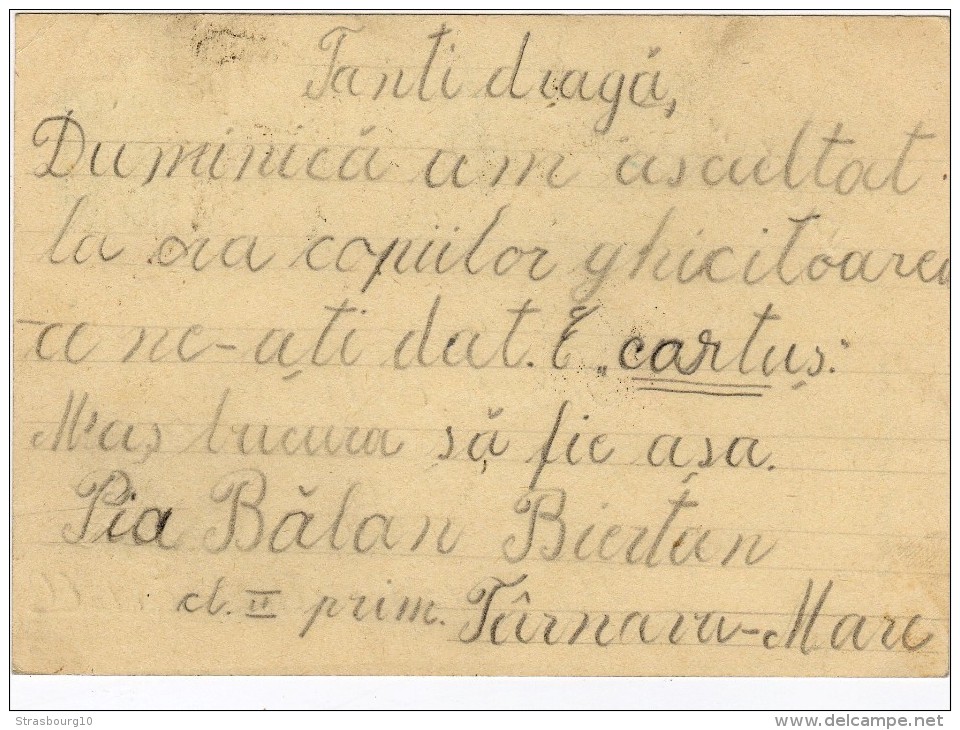 Tanti dragă,
Duminică am ascultat
la ora copiilor ghicitoarea
ce ne-ați dat. E „cartuș."
M'aș bucura să fie asa.
Pia Bălan Biertan
cl. II prim. Târnava-Mare
Strasbourg10
delcampe.net